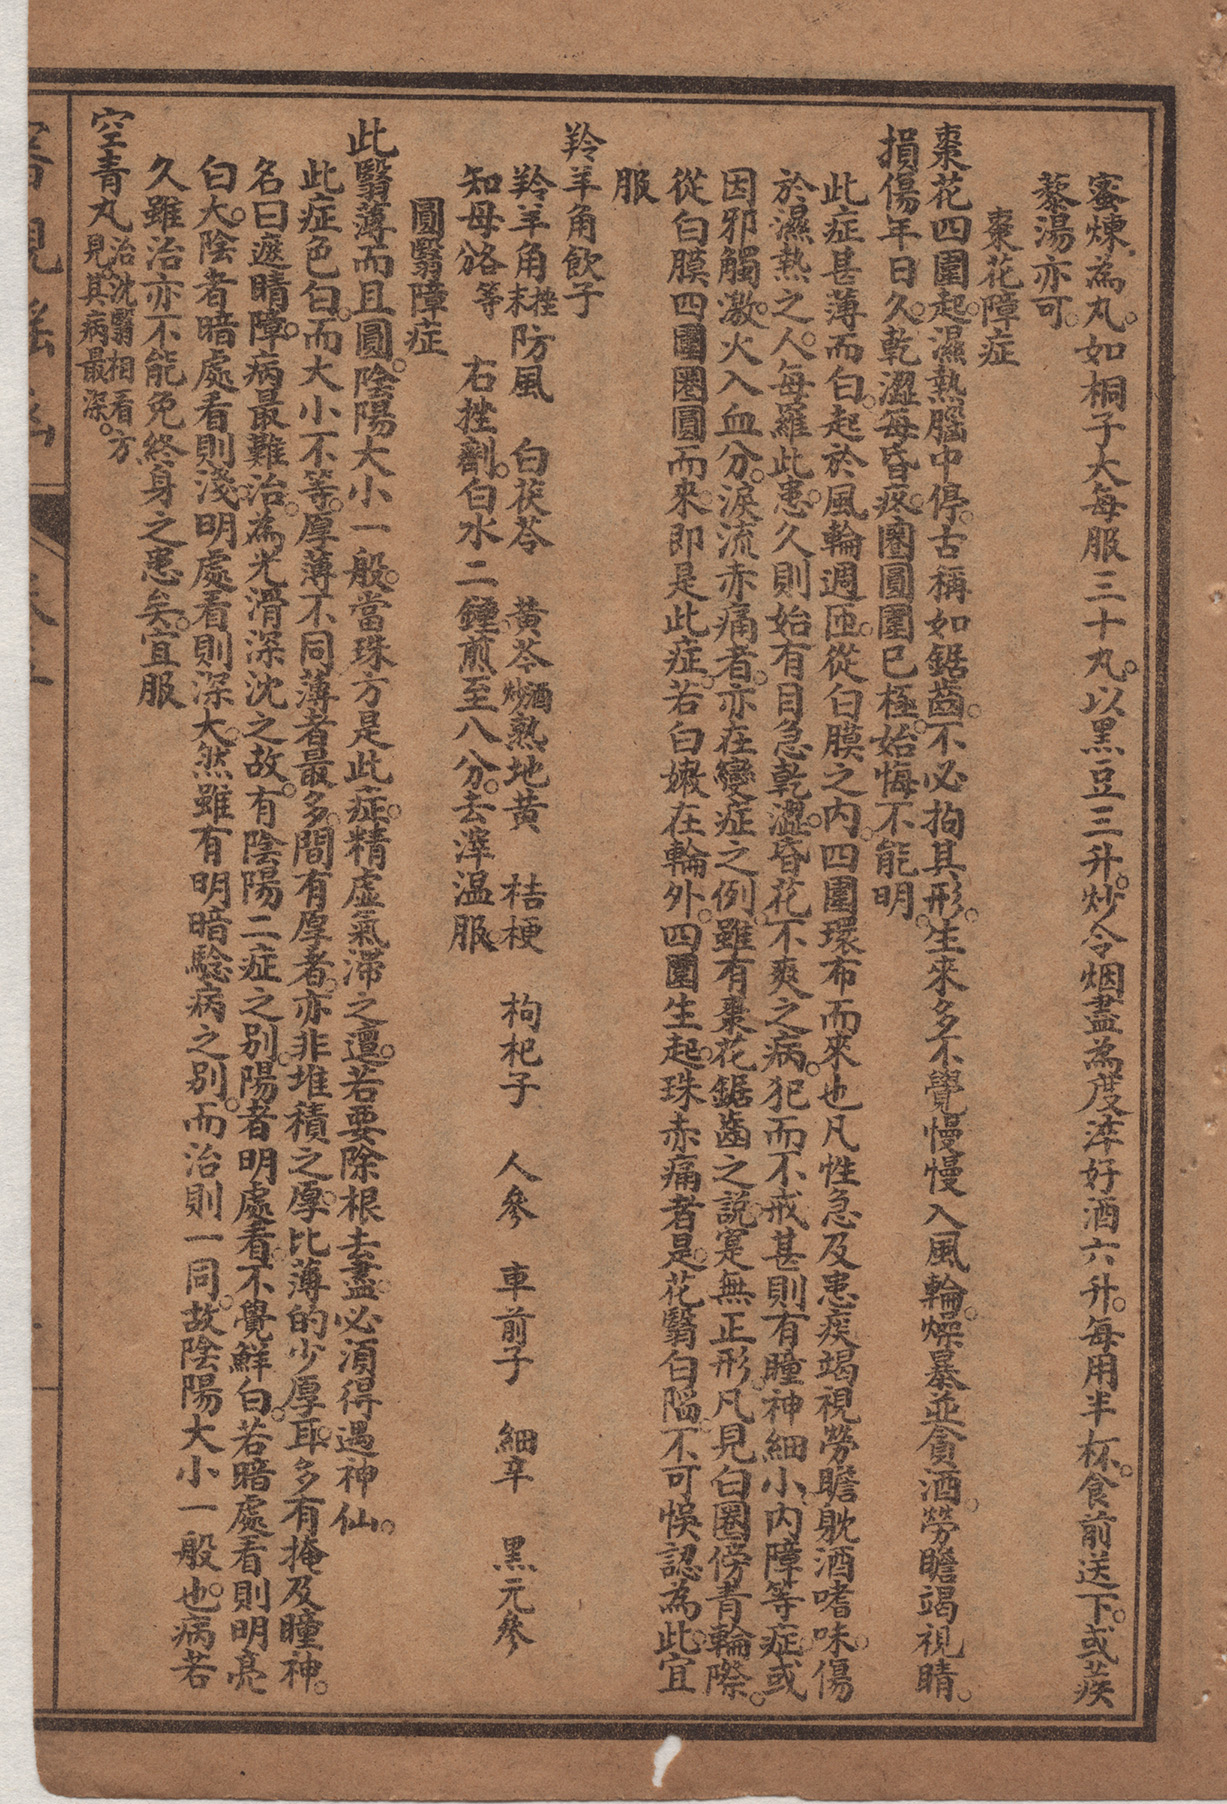 蜜煉為丸。如桐子大每服三十丸。以黑豆三升。炒令烟盡為度淬好酒六升。每用半杯。食前送下。或蒺
藜湯亦可。
棗花障症
棗花四圍起。濕熱腦中停。古稱如鋸齒。不必拘其形。生來多不覺慢慢入風輪。燥暴並貪酒。勞瞻竭視睛。
損傷年日久。乾澀每昏疼。圍圓圍已極。始悔不能明。
此症甚薄而白。起於風輪週匝。從白膜之內。四圍環布而來也凡性急及患痰竭視勞瞻躭酒嗜味。傷
於濕熱之人。每罹此患。久則始有目急乾澀。昏花不爽之病。犯而不戒甚則有瞳神細小。內障等症。或
因邪觸激。火入血分。淚流赤痛者。亦在變症之例。雖有棗花鋸齒之說。寔無正形。凡見白圈傍青輪際。
從白膜四圍圈圓而來。即是此症。若白嫩在輪外。四圍生起。珠赤痛者是。花翳白陷。不可悞認為此。宜
服
羚羊角飲子
羚羊角挫末 防風 白茯苓 黃芩酒炒 熟地黃 桔梗 枸杞子 人參 車前子 細辛 黑元參
知母各等 右挫劑。白水二鍾。煎至八分。去滓温服。
圓翳障症
此翳薄而且圓。陰陽大小一般。當珠方是此症。精虛氣滯之邅。若要除根去盡。必須得遇神仙。
此症色白。而大小不等。厚薄不同薄者最多。間有厚者。亦非堆積之厚。比薄的少厚耳。多有掩及瞳神。
名曰遮睛障。病最難治。為光滑深沈之故。有陰陽二症之別。陽者明處看。不覺鮮白。若暗處看則明亮
白大。陰者暗處看則淺。明處看則深大。然雖有明暗驗病之別。而治則一同。故陰陽大小一般也。病若
久雖治亦不能免終身之患矣。宜服
空青丸治沈翳相看方見其病最深。